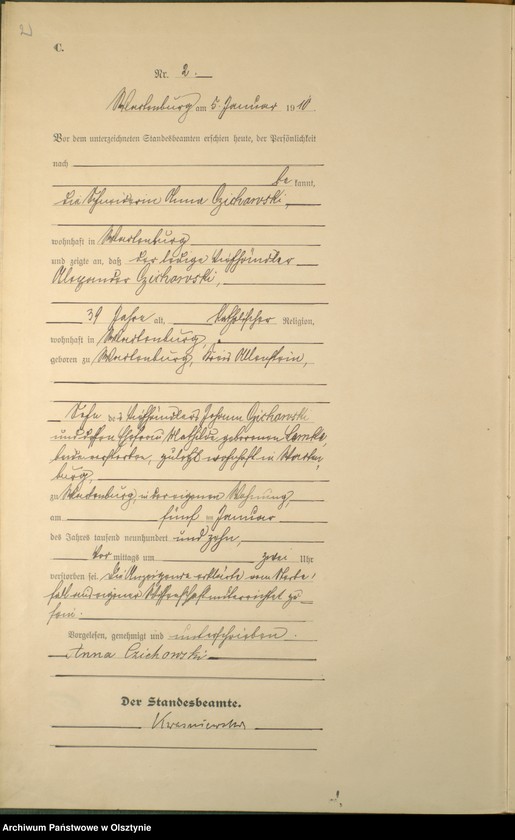 2
C.
Nr. 2.
Wartenburg am 5. Januar 1910
Vor dem unterzeichneten Standesbeamten erschien heute, der Persönlichkeit
nach
bekannt,
die Schneiderin Anna Czichowski,
wohnhaft in Wartenburg
und zeigte an, daß der ledige Viehhändler
Alexander Czichowski,
39 Jahre alt, katholischer Religion,
wohnhaft in Wartenburg,
geboren zu Wartenburg, Kreis Allenstein,
Sohn des Viehhändlers Johann Czichowski
und dessen Ehefrau Mathilde geborenen
beide verstorben, zuletzt wohnhaft in Warten
burg,
zu Wartenburg, in der eigenen Wohnung,
am fünf ten Januar
des Jahres tausend neunhundert und zehn,
Vor mittags um zwei Uhr
verstorben sei. Die Anzeigende erklärte vom Sterbe
fall aus eigener Wissenschaft unterrichtet zu
sein.
Vorgelesen, genehmigt und unterschrieben.
Anna Czichowski
Der Standesbeamte.
Archiwum Państwowe w Olsztynie